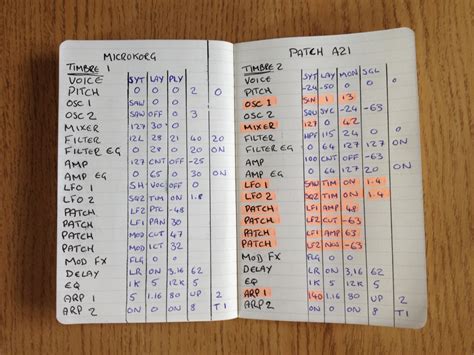 MICROKORG
TIMBRE 1
VOICE SYT LAY PLY
PITCH 0 0 0 2 0
OSC 1 SAW 0 0
OSC 2 SAW OFF 0 3
MIXER 127 0 0
FILTER 12L 28 21 40 20
FILTER EG 0 41 0 20 ON
AMP 127 CNT OFF -25
AMP EG 0 65 0 30 ON
LFO 1 SH VOC OFF
LFO 2 SQ2 TIM ON 1.8
PATCH LF2 PTC -48
PATCH LF1 PAN 30
PATCH MOD CUT 47
PATCH MOD 1CT 32
MOD FX FLG 0 0
DELAY LR ON 3.16 62
EQ 1K 5 12K 5
ARP 1 5 1.16 80 UP 2
ARP 2 ON 0 ON 8 T1
PATCH A21
TIMBRE 2
VOICE SYT LAY MON SGL
PITCH -24 -50 0
OSC 1 SIN 1 13
OSC 2 SQU -63
MIXER 127 0 42
FILTER HPF 115 24 0 0
FILTER EG 0 64 127 0 ON
AMP 127 CNT OFF 0
AMP EG 0 64 127 0 ON
LFO 1 SAW TIM ON 1.4
LFO 2 SQ2 TIM ON 1.4
PATCH LF1 AMP 48
PATCH LF2 CUT -63
PATCH LF1 AMP 63
PATCH LF2 -63
MOD FX FLG 0 0
DELAY LR ON 3.16 62
EQ 1K 5 12K 5
ARP 1 140 1.16 80 UP 2
ARP 2 ON 0 ON 8 T1